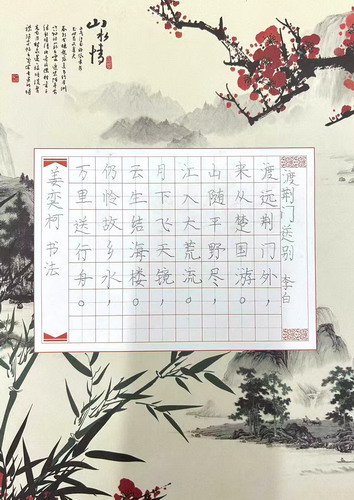 山水情
渡荆门送别 李白
渡远荆门外，
来从楚国游。
山随平野尽，
江入大荒流。
月下飞天镜，
云生结海楼。
仍怜故乡水，
万里送行舟。
姜奕柯 书法